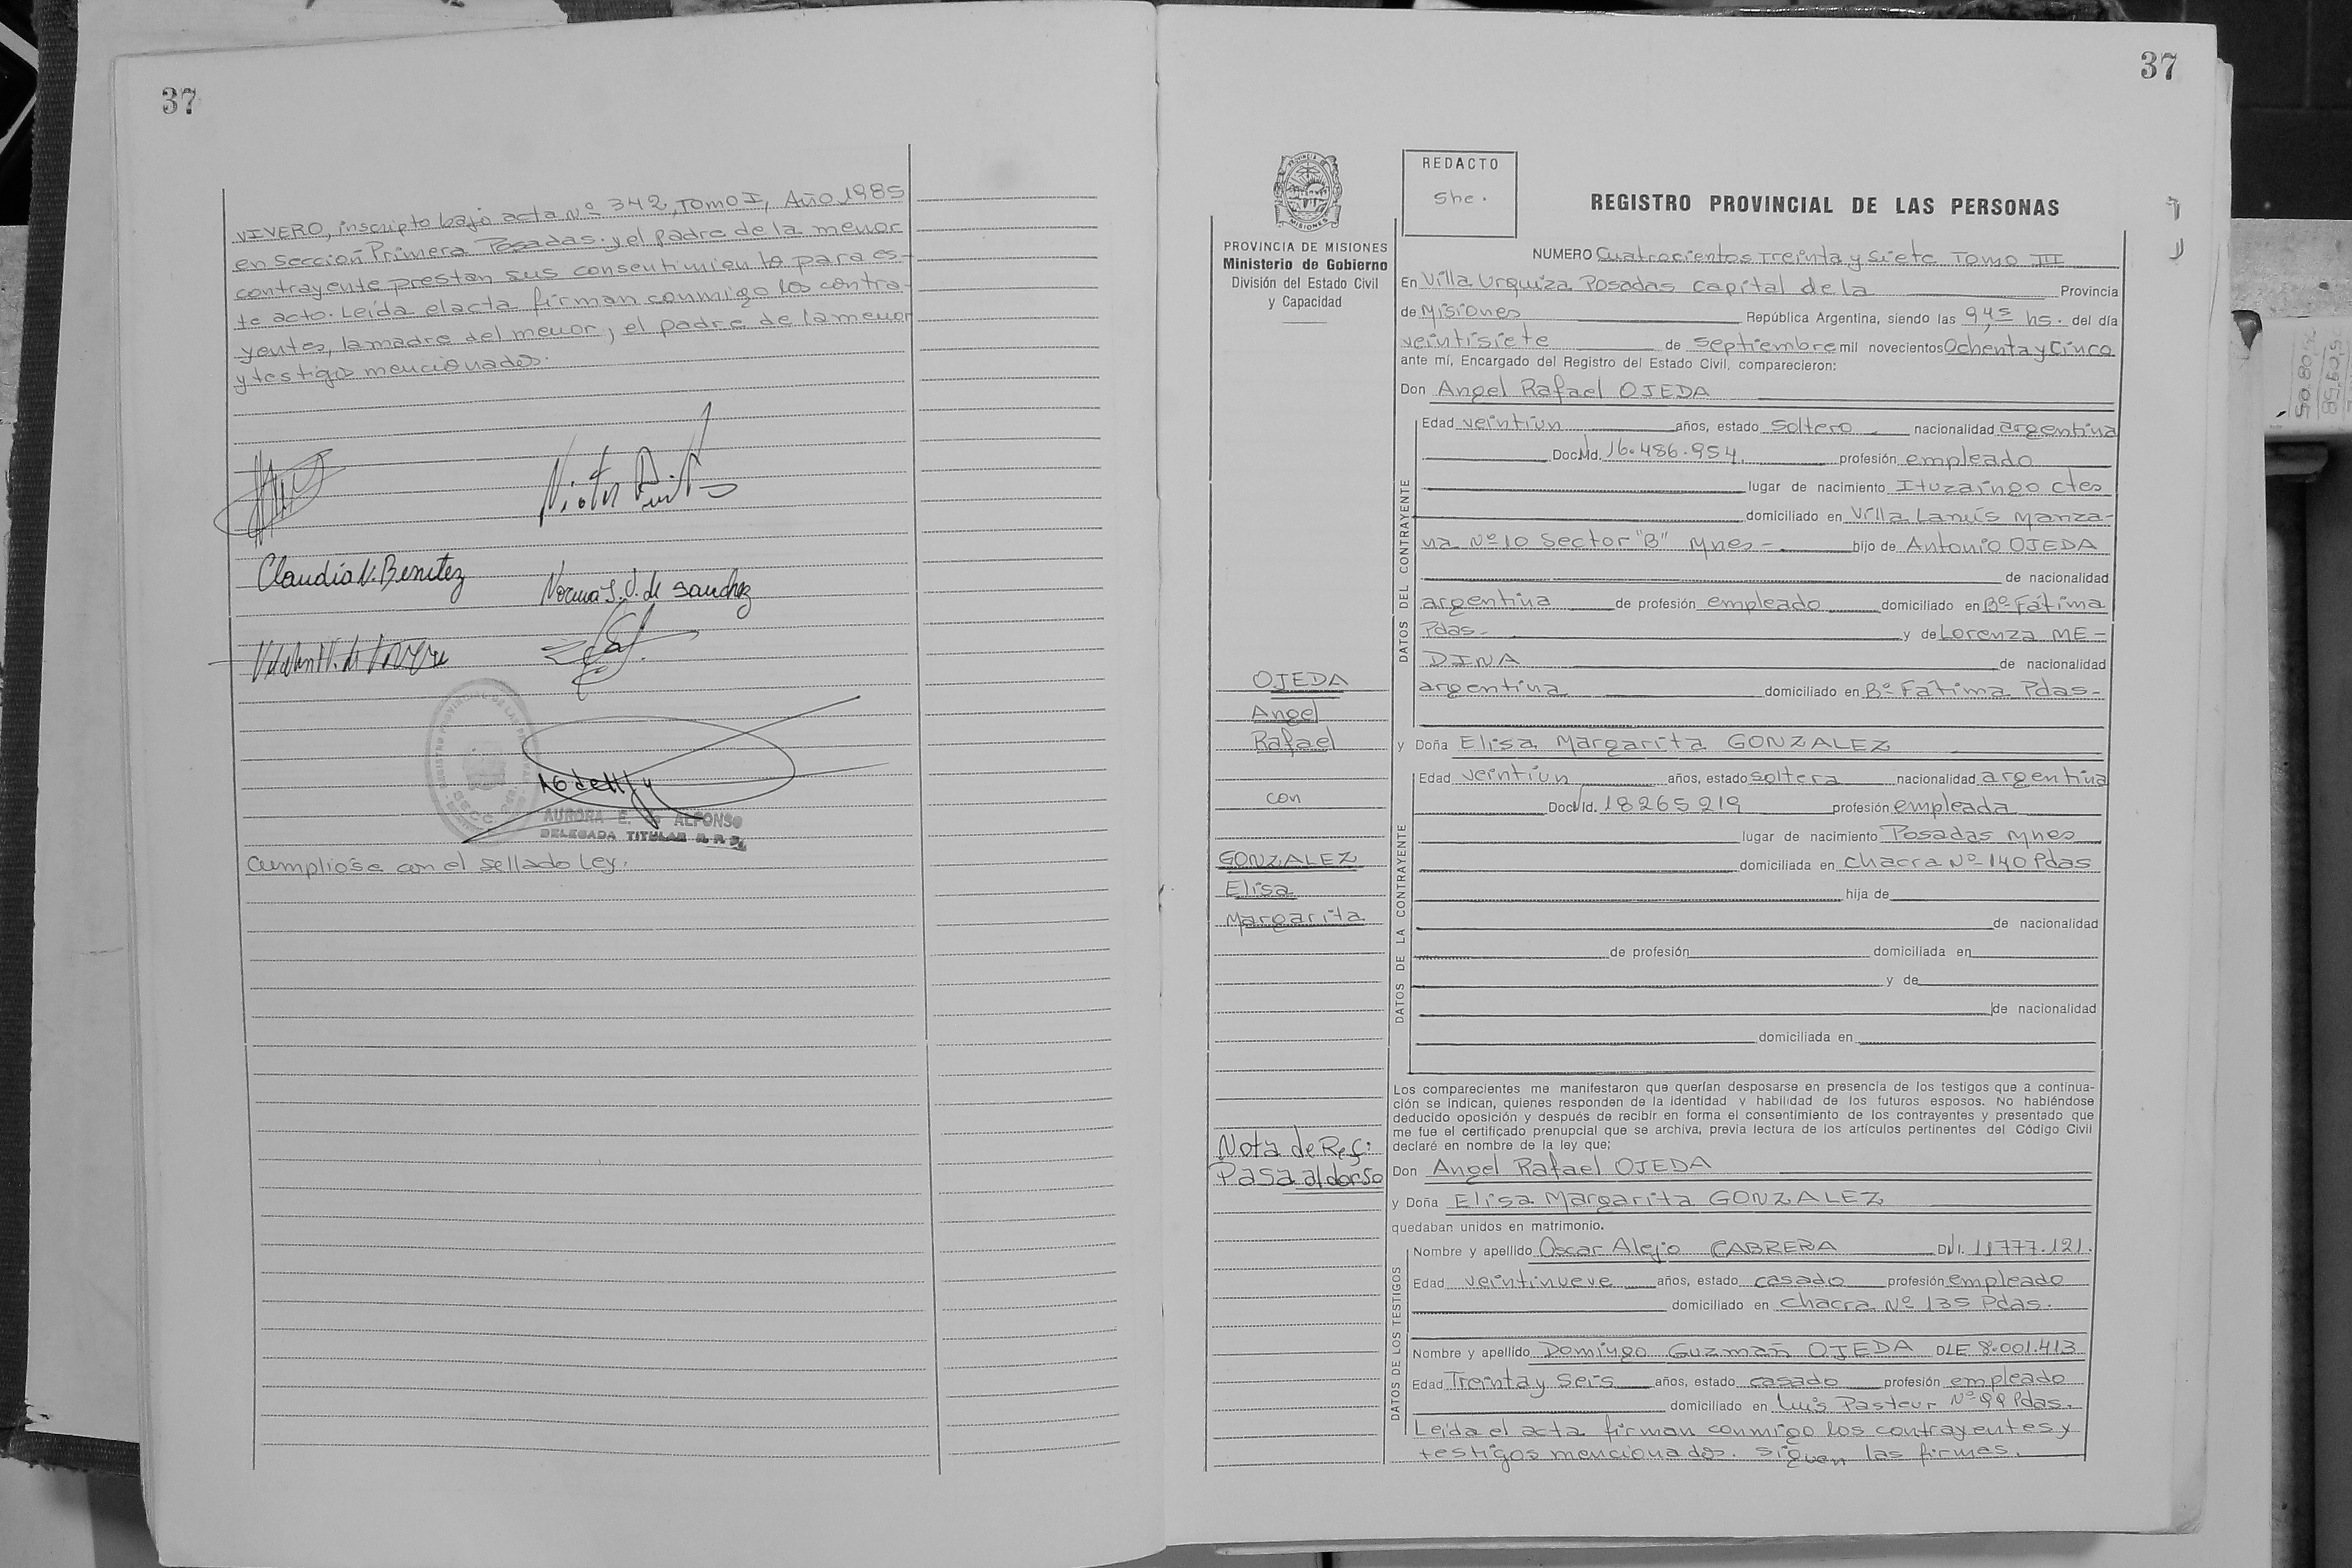 37
VIVERO, inscripto bajo acta Nº 342, Tomo I, Año 1985
en Sección Primera Posadas. y el padre de la menor
contrayente prestan sus consentimiento para es-
te acto. Leída el acta firman conmigo los contra-
yentes, la madre del menor, el padre de la menor
y testigos mencionados.
Claudia V. Benitez
Norma S. O. de Sanchez
AURORA E. de ALFONSO
DELEGADA TITULAR R.P.P.
Cumpliose con el sellado Ley.
37
REDACTO
She.
REGISTRO PROVINCIAL DE LAS PERSONAS
PROVINCIA DE MISIONES
Ministerio de Gobierno
División del Estado Civil
y Capacidad
NUMERO Cuatrocientos Treinta y Siete Tomo III
En Villa Urquiza Posadas Capital de la Provincia
de Misiones República Argentina, siendo las 9,45 hs. del día
veintisiete de Septiembre mil novecientos Ochenta y Cinco
ante mí, Encargado del Registro del Estado Civil, comparecieron:
Don Angel Rafael OJEDA
DATOS DEL CONTRAYENTE
Edad veintiun años, estado soltero nacionalidad argentina
Doc. Id. 16.486.954. profesión empleado
lugar de nacimiento Ituzaingo Ctes
domiciliado en Villa Lanús Manza-
na Nº 10 Sector "B" Mnes- hijo de Antonio OJEDA
de nacionalidad
argentina de profesión empleado domiciliado en Bº Fátima
Pdas- y de Lorenza ME-
DINA de nacionalidad
argentina domiciliado en Bº Fátima Pdas-
OJEDA
Angel
Rafael
con
GONZALEZ
Elisa
Margarita
y Doña Elisa Margarita GONZALEZ
DATOS DE LA CONTRAYENTE
Edad veintiun años, estado soltera nacionalidad argentina
Doc. Id. 18265219 profesión empleada
lugar de nacimiento Posadas Mnes
domiciliada en Chacra Nº 140 Pdas
hija de
de nacionalidad
de profesión domiciliada en
y de
de nacionalidad
domiciliada en
Los comparecientes me manifestaron que querían desposarse en presencia de los testigos que a continua-
ción se indican, quienes responden de la identidad y habilidad de los futuros esposos. No habiéndose
deducido oposición y después de recibir en forma el consentimiento de los contrayentes y presentado que
me fue el certificado prenupcial que se archiva, previa lectura de los artículos pertinentes del Código Civil
declaré en nombre de la ley que;
Nota de Ref:
Pasa al dorso
Don Angel Rafael OJEDA
y Doña Elisa Margarita GONZALEZ
quedaban unidos en matrimonio.
DATOS DE LOS TESTIGOS
Nombre y apellido Oscar Alejo CABRERA DNI. 11777.121.
Edad veintinueve años, estado casado profesión empleado
domiciliado en Chacra Nº 135 Pdas.
Nombre y apellido Domingo Guzmán OJEDA DLE 8.001.413
Edad Treinta y Seis años, estado casado profesión empleado
domiciliado en Luis Pasteur Nº 99 Pdas.
Leída el acta firman conmigo los contrayentes y
testigos mencionados. siguen las firmas.